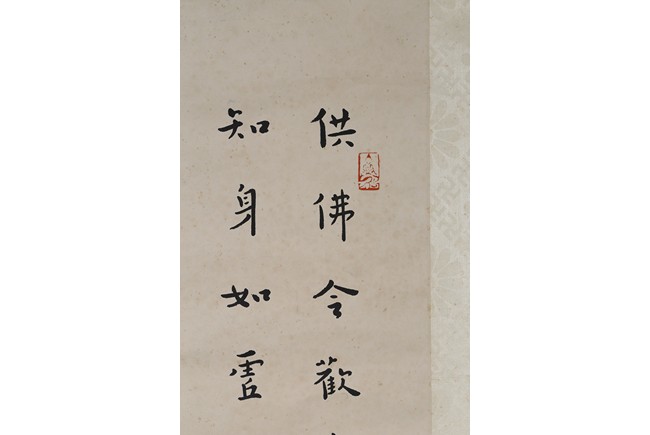 供佛令歡
知身如虗